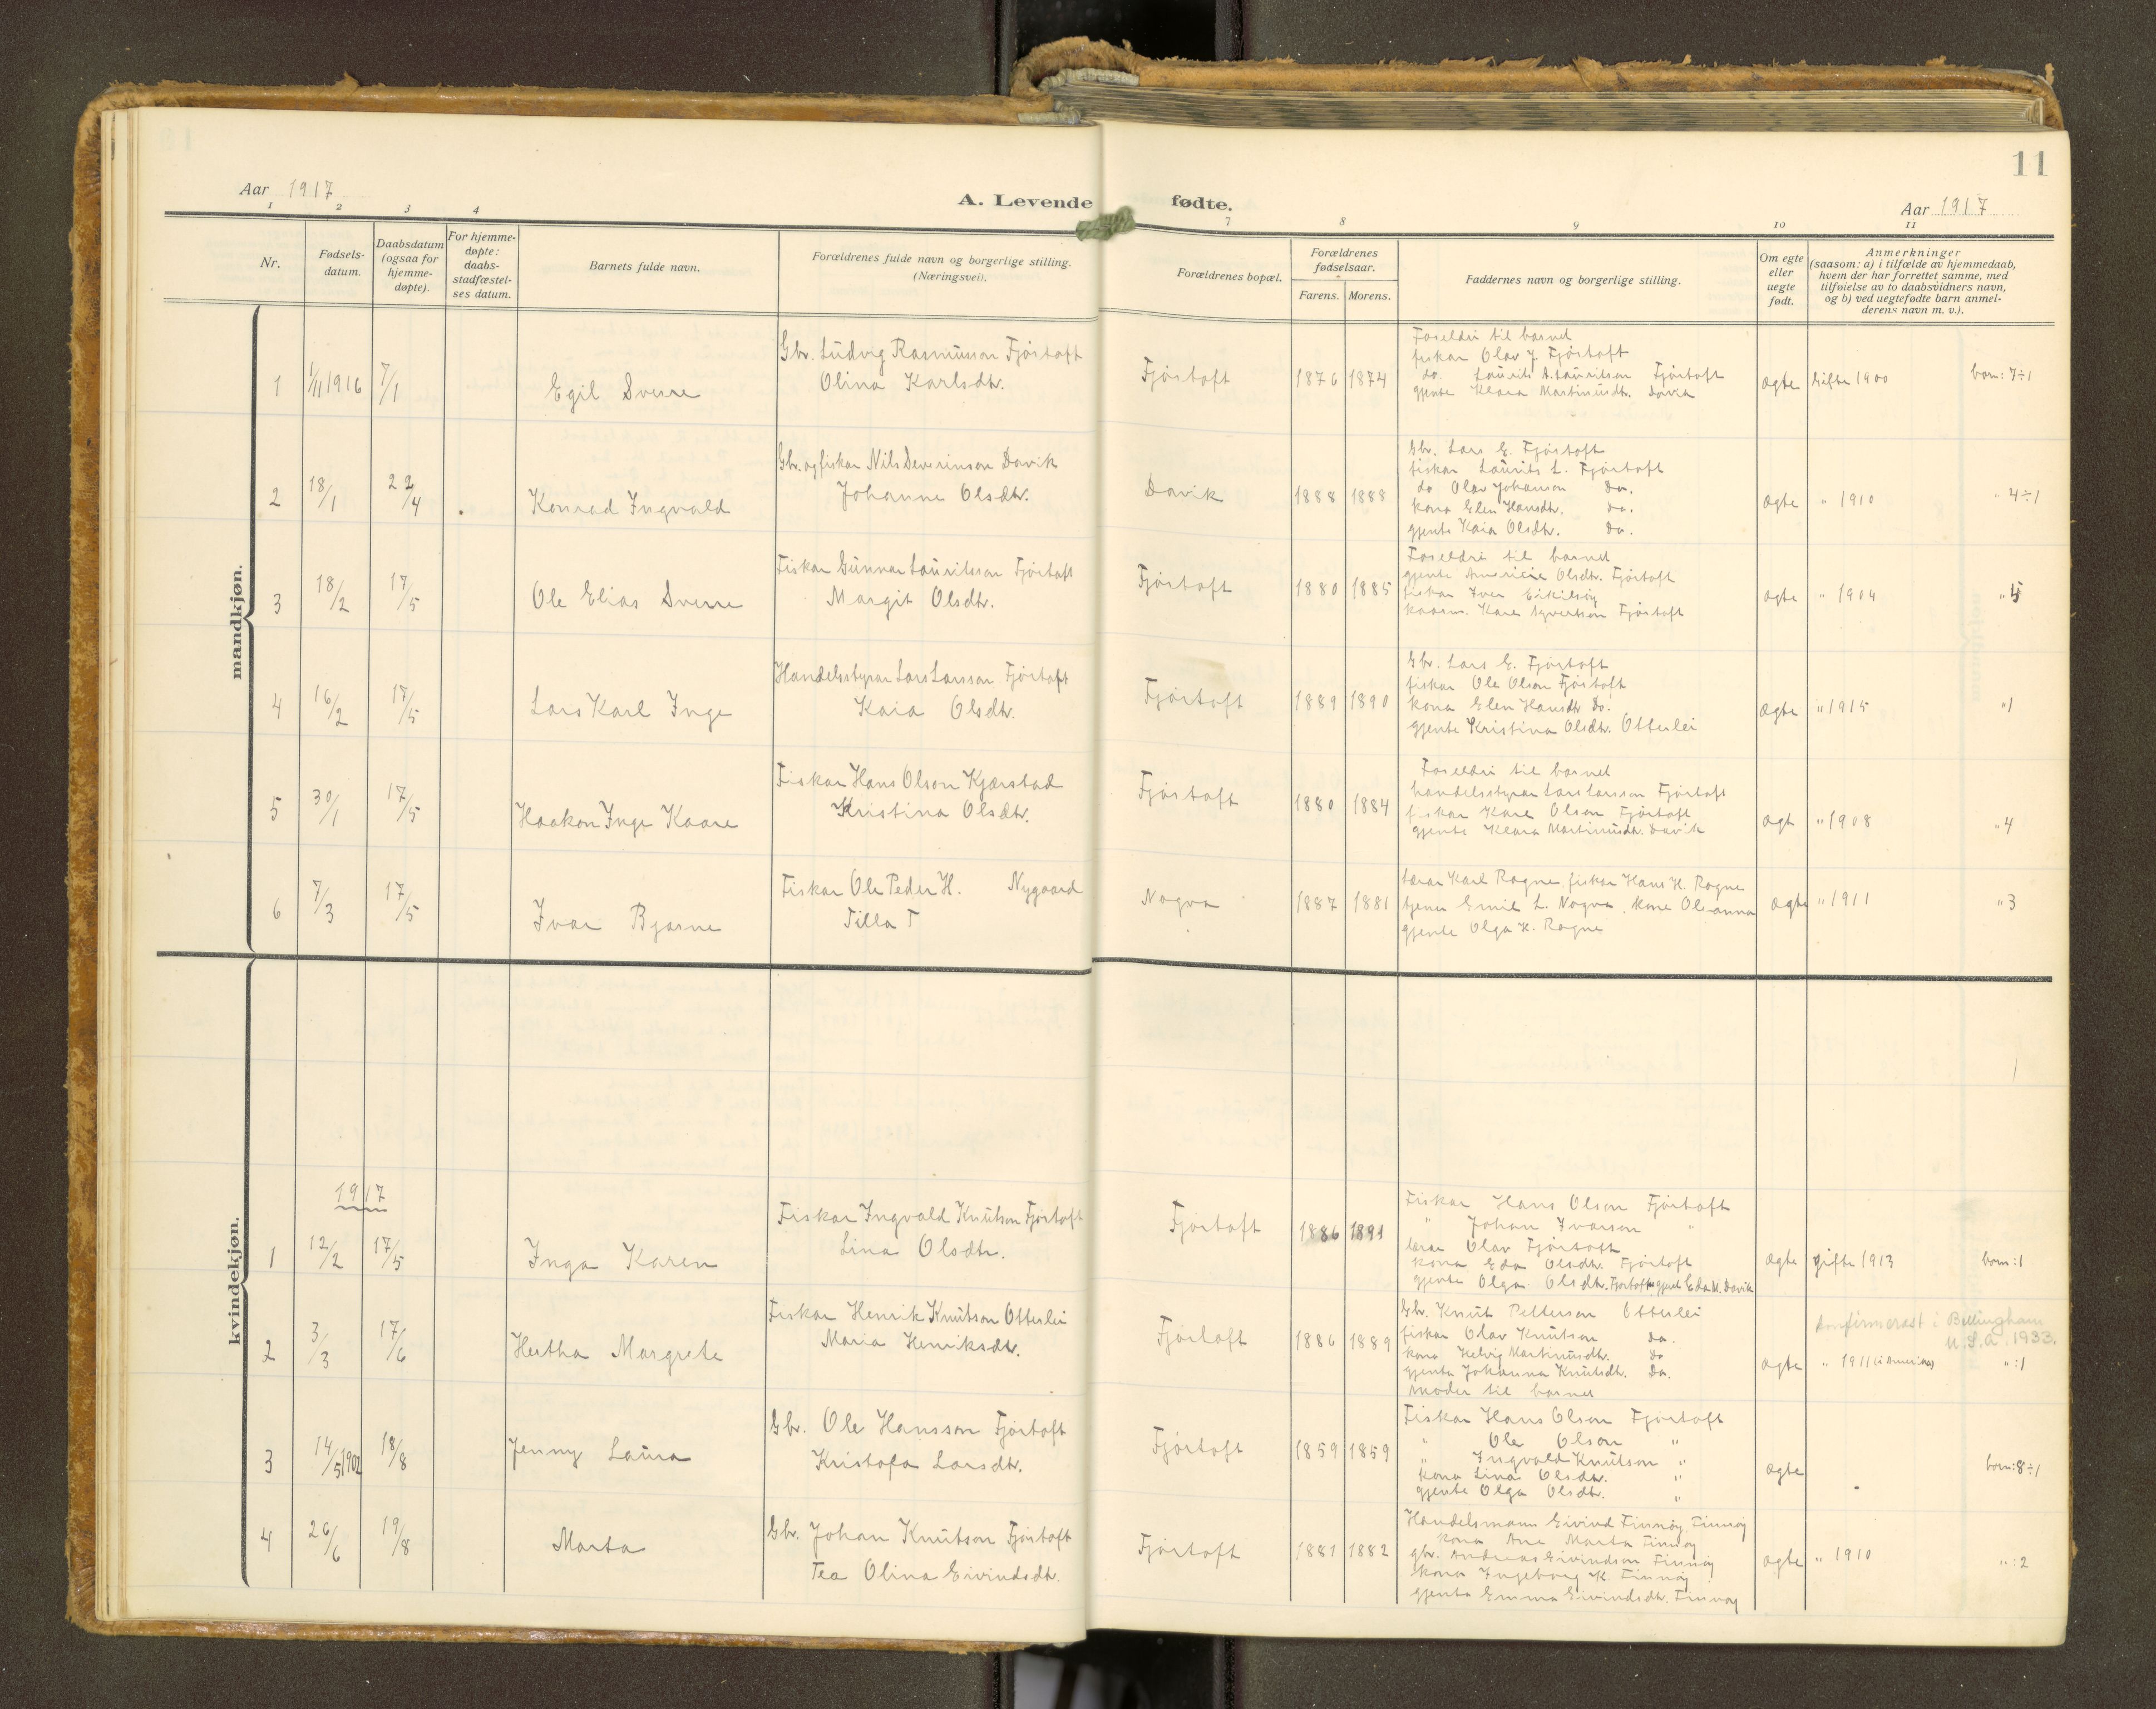 11
Aar 1917
A. Levende fødte.
Aar 1917
1 2 3 4 7 8 9 10 11
Nr.
Fødsels-
datum.
Daabsdatum
(ogsaa for
hjemme-
døpte).
For hjemme-
døpte:
daabs-
stadfæstel-
ses datum.
Barnets fulde navn.
Forældrenes fulde navn og borgerlige stilling.
(Næringsvei).
Forældrenes bopæl.
Forældrenes
fødselsaar.
Farens. Morens.
Faddernes navn og borgerlige stilling.
Om egte
eller
uegte
født.
Anmerkninger
(saasom: a) i tilfælde av hjemmedaab,
hvem der har forrettet samme, med
tilføielse av to daabsvidners navn,
og b) ved uegtefødte barn anmel-
derens navn m. v.).
mandkjøn.
1 1/11 1916 7/1 Egil Sverre
Gbr. Ludvig Rasmusson Fjørtoft
Olina Karlsdtr.
Fjørtoft 1876 1874
Foreldri til barnet
fiskar Olav J. Fjørtoft
do. Laurits A. Lauritson Fjørtoft
gjente Klara Martinusdtr. Davik
ægte gifte 1900 born: 7÷1
2 18/1 22/4 Konrad Ingvald
Gbr. og fiskar Nils Severinson Davik
Johanne Olsdtr.
Davik 1888 1888
Gbr. Lars E. Fjørtoft
fiskar Laurits L. Fjørtoft
do Olav Johanson do.
kona Elen Hansdtr. do.
gjente Kaia Olsdtr. do.
ægte " 1910 " 4÷1
3 18/2 17/5 Ole Elias Sverre
Fiskar Gunnar Lauritsson Fjørtoft
Margit Olsdtr.
Fjørtoft 1880 1885
Foreldri til barnet
gjente Olsdtr. Fjørtoft
fiskar Iver
Kare Fjørtoft
ægte " 1904 " 5
4 16/2 17/5 Lars Karl Inge
Handelsstyrar Lars Larsson Fjørtoft
Kaia Olsdtr.
Fjørtoft 1889 1890
Gbr. Lars E. Fjørtoft
fiskar Ole Olson Fjørtoft
kona Elen Hansdtr do.
gjente Kristina Olsdtr. Otterlei
ægte " 1915 " 1
5 30/1 17/5 Haakon Inge Kaare
Fiskar Hans Olson Kjærstad
Kristina Olsdtr.
Fjørtoft 1880 1884
Foreldri til barnet
handelsstyrar Lars Larsson Fjørtoft
fiskar Kare Olson Fjørtoft
gjente Klara Martinusdtr. Davik
ægt " 1908 " 4
6 7/3 17/5 Ivar Bjarne
Fiskar Ole Peder H. Nygaard
Tilla T
Nogva 1887 1881
Lærar Karl Rogne, fiskar Hans H. Rogne
tjener Emil L. Nogva, kone Oleanna
gjente Olga H. Rogne
ægte " 1911 " 3
kvindekjøn.
1917
1 12/2 17/5 Inga Karen
Fiskar Ingvald Knutson Fjørtoft
Lina Olsdtr.
Fjørtoft 1886 1891
Fiskar Hans Olson Fjørtoft
" Johan Ivarson "
lærar Olav Fjørtoft
kona Eda Olsdtr. Fjørtoft
gjente Olga Olsdtr. Fjørtoft gjente Eda M. Davik
ægte gifte 1913 born: 1
2 3/3 17/6 Hertha Margrete
Fiskar Henrik Knutson Otterlei
Maria Henriksdtr.
Fjørtoft 1886 1889
Gbr. Knut Petterson Otterlei
fiskar Olav Knutson do.
kona Helvig Martinusdtr. do
gjenta Johanna Knutsdtr. Do.
moder til barnet
konfirmerast i Bellingham
U.S.A. 1933.
ægte " 1911 (i Amerika) ": 1
3 14/5 1902 18/8 Jenny Laura
Gbr. Ole Hansson Fjørtoft
Kristofa Larsdtr.
Fjørtoft 1859 1859
Fiskar Hans Olson Fjørtoft
" Ole Olson "
" Ingvald Knutson "
kona Lina Olsdtr. "
gjente Olga Olsdtr. "
ægte born: 8÷1
4 26/6 19/8 Marta
Gbr. Johan Knutson Fjørtoft
Tea Olina Eivindsdtr.
Fjørtoft 1881 1882
Handelsmann Eivind Finnøy, Finnøy
kona Ane Marta Finnøy
gbr. Andreas Eivindson Finnøy
kona Ingeborg K. Finnøy
gjenta Emma Eivindsdtr. Finnøy
ægte " 1910 ": 2